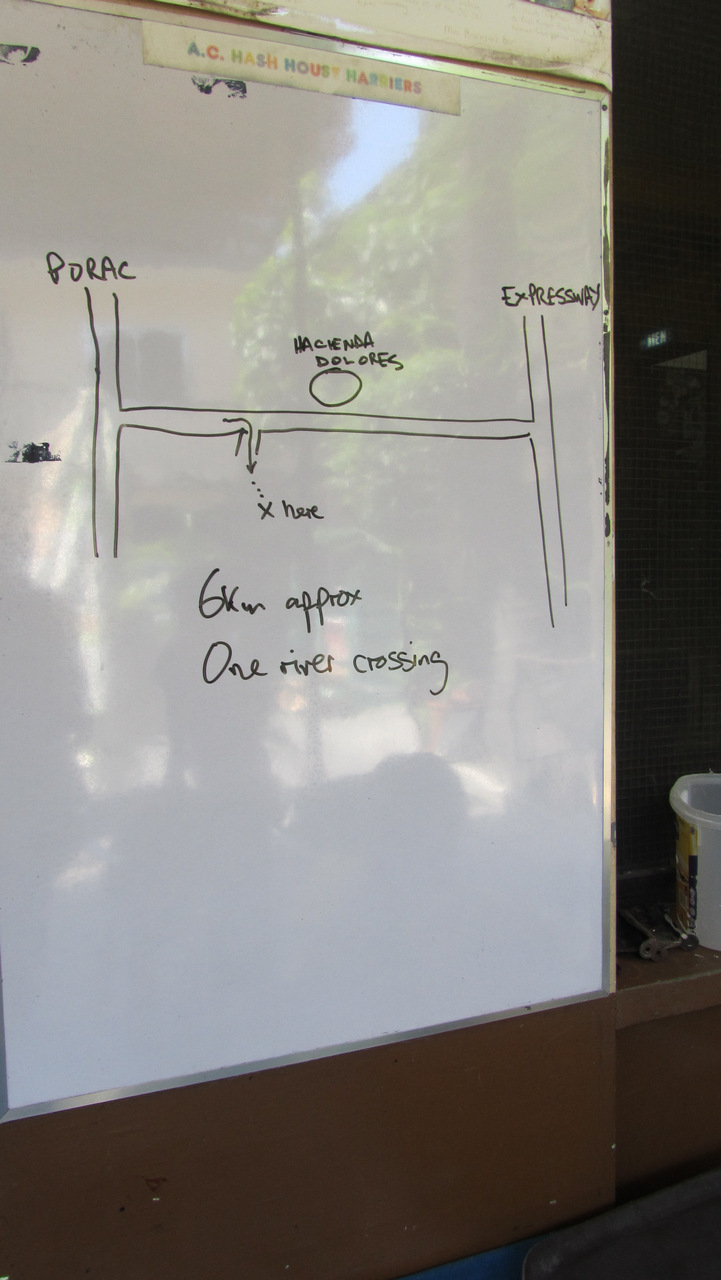 A.C. HASH HOUSE HARRIERS
PORAC
EXPRESSWAY
HACIENDA
DOLORES
X here
6Km approx
One river crossing